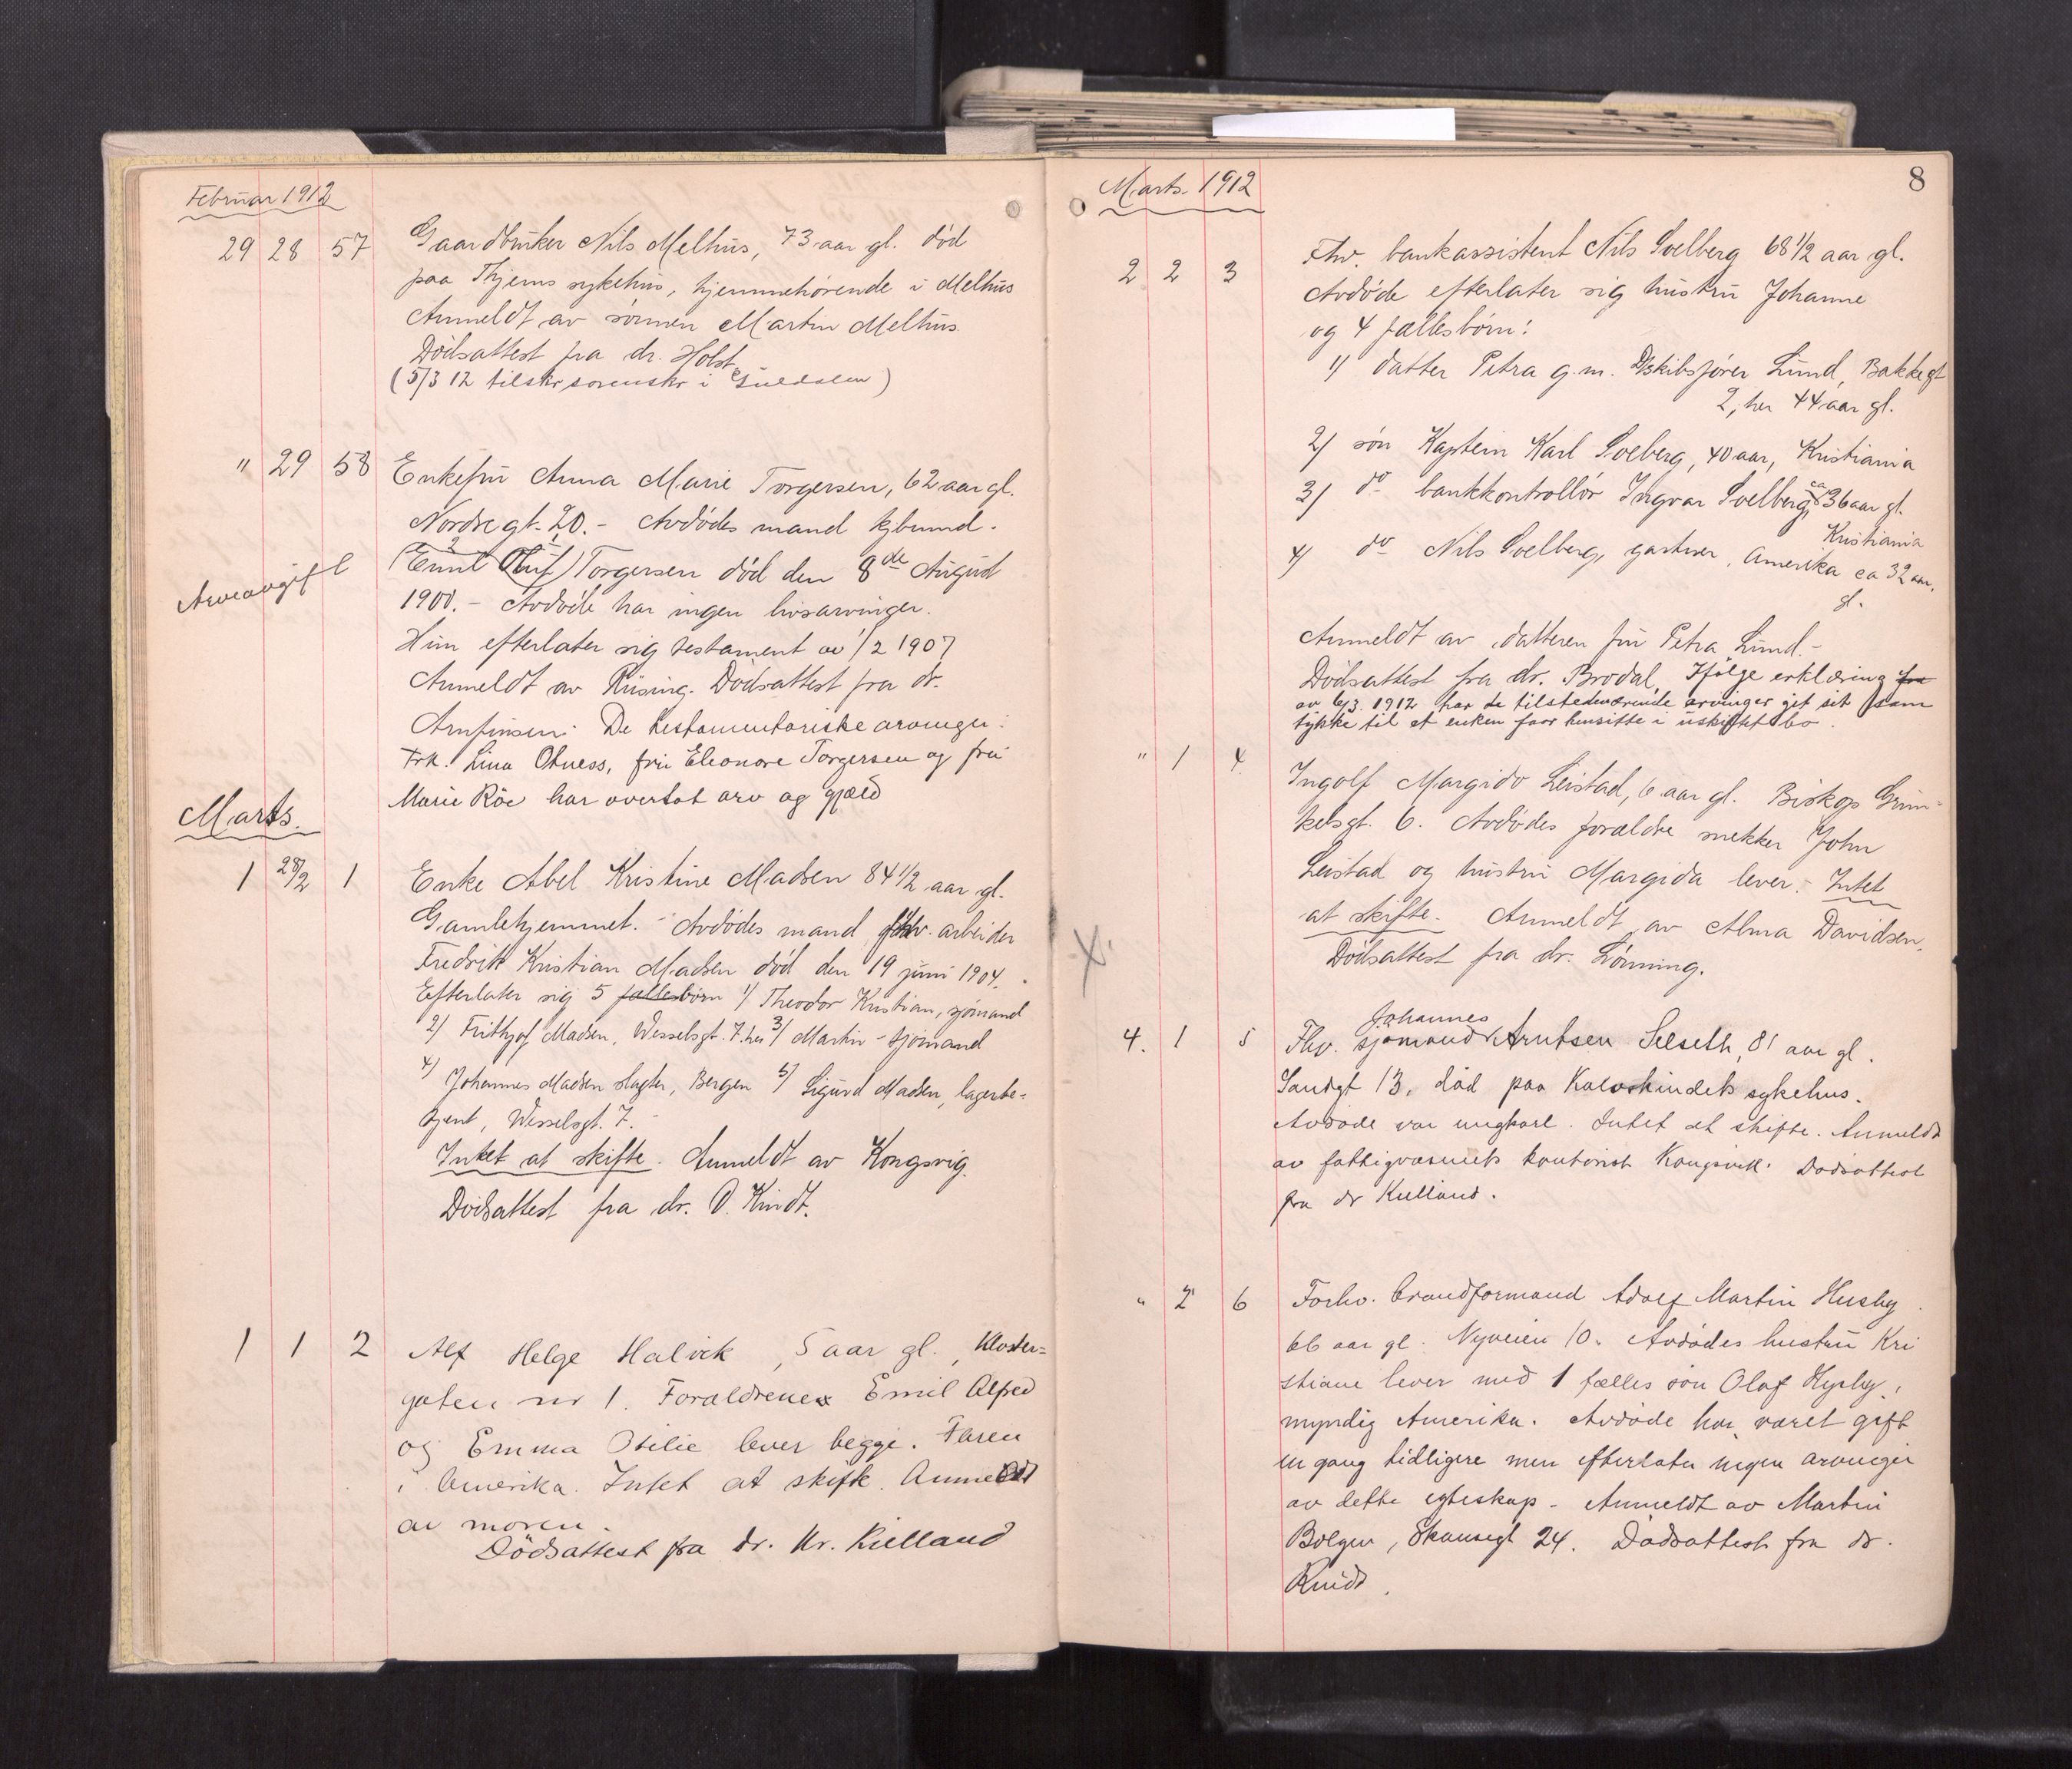 Februar 1912
29 28 57 Gaardbruker Nils Melhus, 73 aar gl. död
paa Thjems sykehus, hjemmehörende i Melhus
Anmeldt av sönnen Martin Melhus.
Dödsattest fra dr. Holst.
(5/3 12 tilskr sorenskr i Guldalen)
" 29 58 Enkefru Anna Marie Torgersen, 62 aar gl.
Nordregt. 20. - Avdödes mand kjbmnd.
(Emil Oluf) Torgersen död den 8de August
Arveavgift
1900. - Avdöde har ingen livsarvinger.
Hun efterlater sig testament av 1/2 1907
Anmeldt av Rüsing. Dödsattest fra dr.
Arnfinsen. De testamentariske arvinger:
Frk. Lina Otness, fru Eleonore Torgersen og fru
Marie Röe har overtat arv og gjæld
Marts.
1 28/2 1 Enke Abel Kristine Madsen 84 1/2 aar gl.
Gamlehjemmet. - Avdödes mand fhv. arbeider
Fredrik Kristian Madsen död den 19 juni 1904.
Efterlater sig 5 fællesbörn 1/ Theodor Kristian, sjömand
2/ Frithjof Madsen, Wesselsgt. 7. her 3/ Martin - sjömand
4/ Johannes Madsen slagter, Bergen 5/ Sigurd Madsen, lagerbe-
tjent, Wesselsgt. 7.
Intet at skifte. Anmeldt av Kongsvig.
Dödsattest fra dr. O. Kindt.
1 1 2 Alf Helge Halvik, 5 aar gl., Kloster=
gaten nr 1. Forældrene Emil Alfred
og Emma Otilie lever begge. Faren
i Amerika. Intet at skifte. Anmeldt
av moren.
Dödsattest fra dr. Kr. Kielland
Marts. 1912
8
2 2 3 Fhv. bankassistent Nils Soelberg 68 1/2 aar gl.
Avdöde efterlater sig hustru Johanne
og 4 fællesbörn:
1/ datter Petra g.m. D/skibsförer Lund, Bakkegt
2, her 44 aar gl.
2/ sön Kaptein Karl Soelberg, 40 aar, Kristiania
3/ do bankkontrollör Ingvar Soelberg, ca 36 aar gl.
Kristiania
4/ do Nils Soelberg, gartner, Amerika ca 32 aar,
gl.
Anmeldt av datteren fru Petra Lund. -
Dödsattest fra dr. Brodal. Ifölge erklæring fra
av 6/3. 1912 har de tilstedeværende arvinger git sit sam
tykke til at enken faar hensitte i uskiftet bo.
" 1 4. Ingolf Margido Leistad, 6 aar gl. Biskop Grim=
kelsgt. 6. Avdödes forældre snekker John
Leistad og hustru Margida lever. - Intet
at skifte. Anmeldt av Alma Davidsen.
Dödsattest fra dr. Lönning.
X.
Johannes
4. 1 5 Fhv. sjömand Arntsen Selseth, 81 aar gl.
Sandgt 13. död paa Kalvskindets sykehus.
Avdöde var ungkarl. Intet at skifte. Anmeldt
av fattigvæsenets kontorist Kongsvik. Dödsattest
fra dr Kielland.
" 2 6 Forhv. brandformand Adolf Martin Husby
66 aar gl. Nyveien 10. Avdödes hustru Kri
stiane lever med 1 fælles sön Olaf Husby,
myndig Amerika. Avdöde har været gift
en gang tidligere men efterlater ingen arvinger
av dette egteskap. - Anmeldt av Martin
Bolgen, Skansegt 24. Dödsattest fra dr.
Kindt.